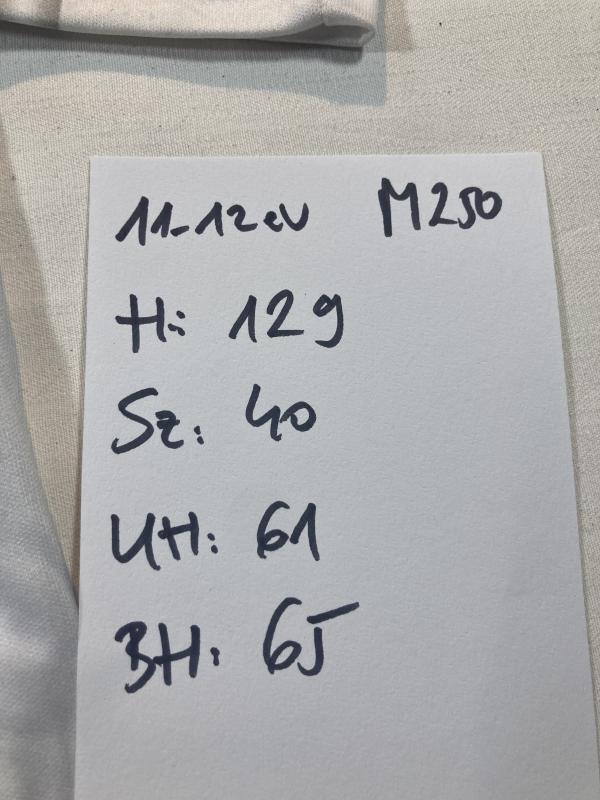 11-12 év M250
H: 129
Sz: 40
UH: 61
BH: 65